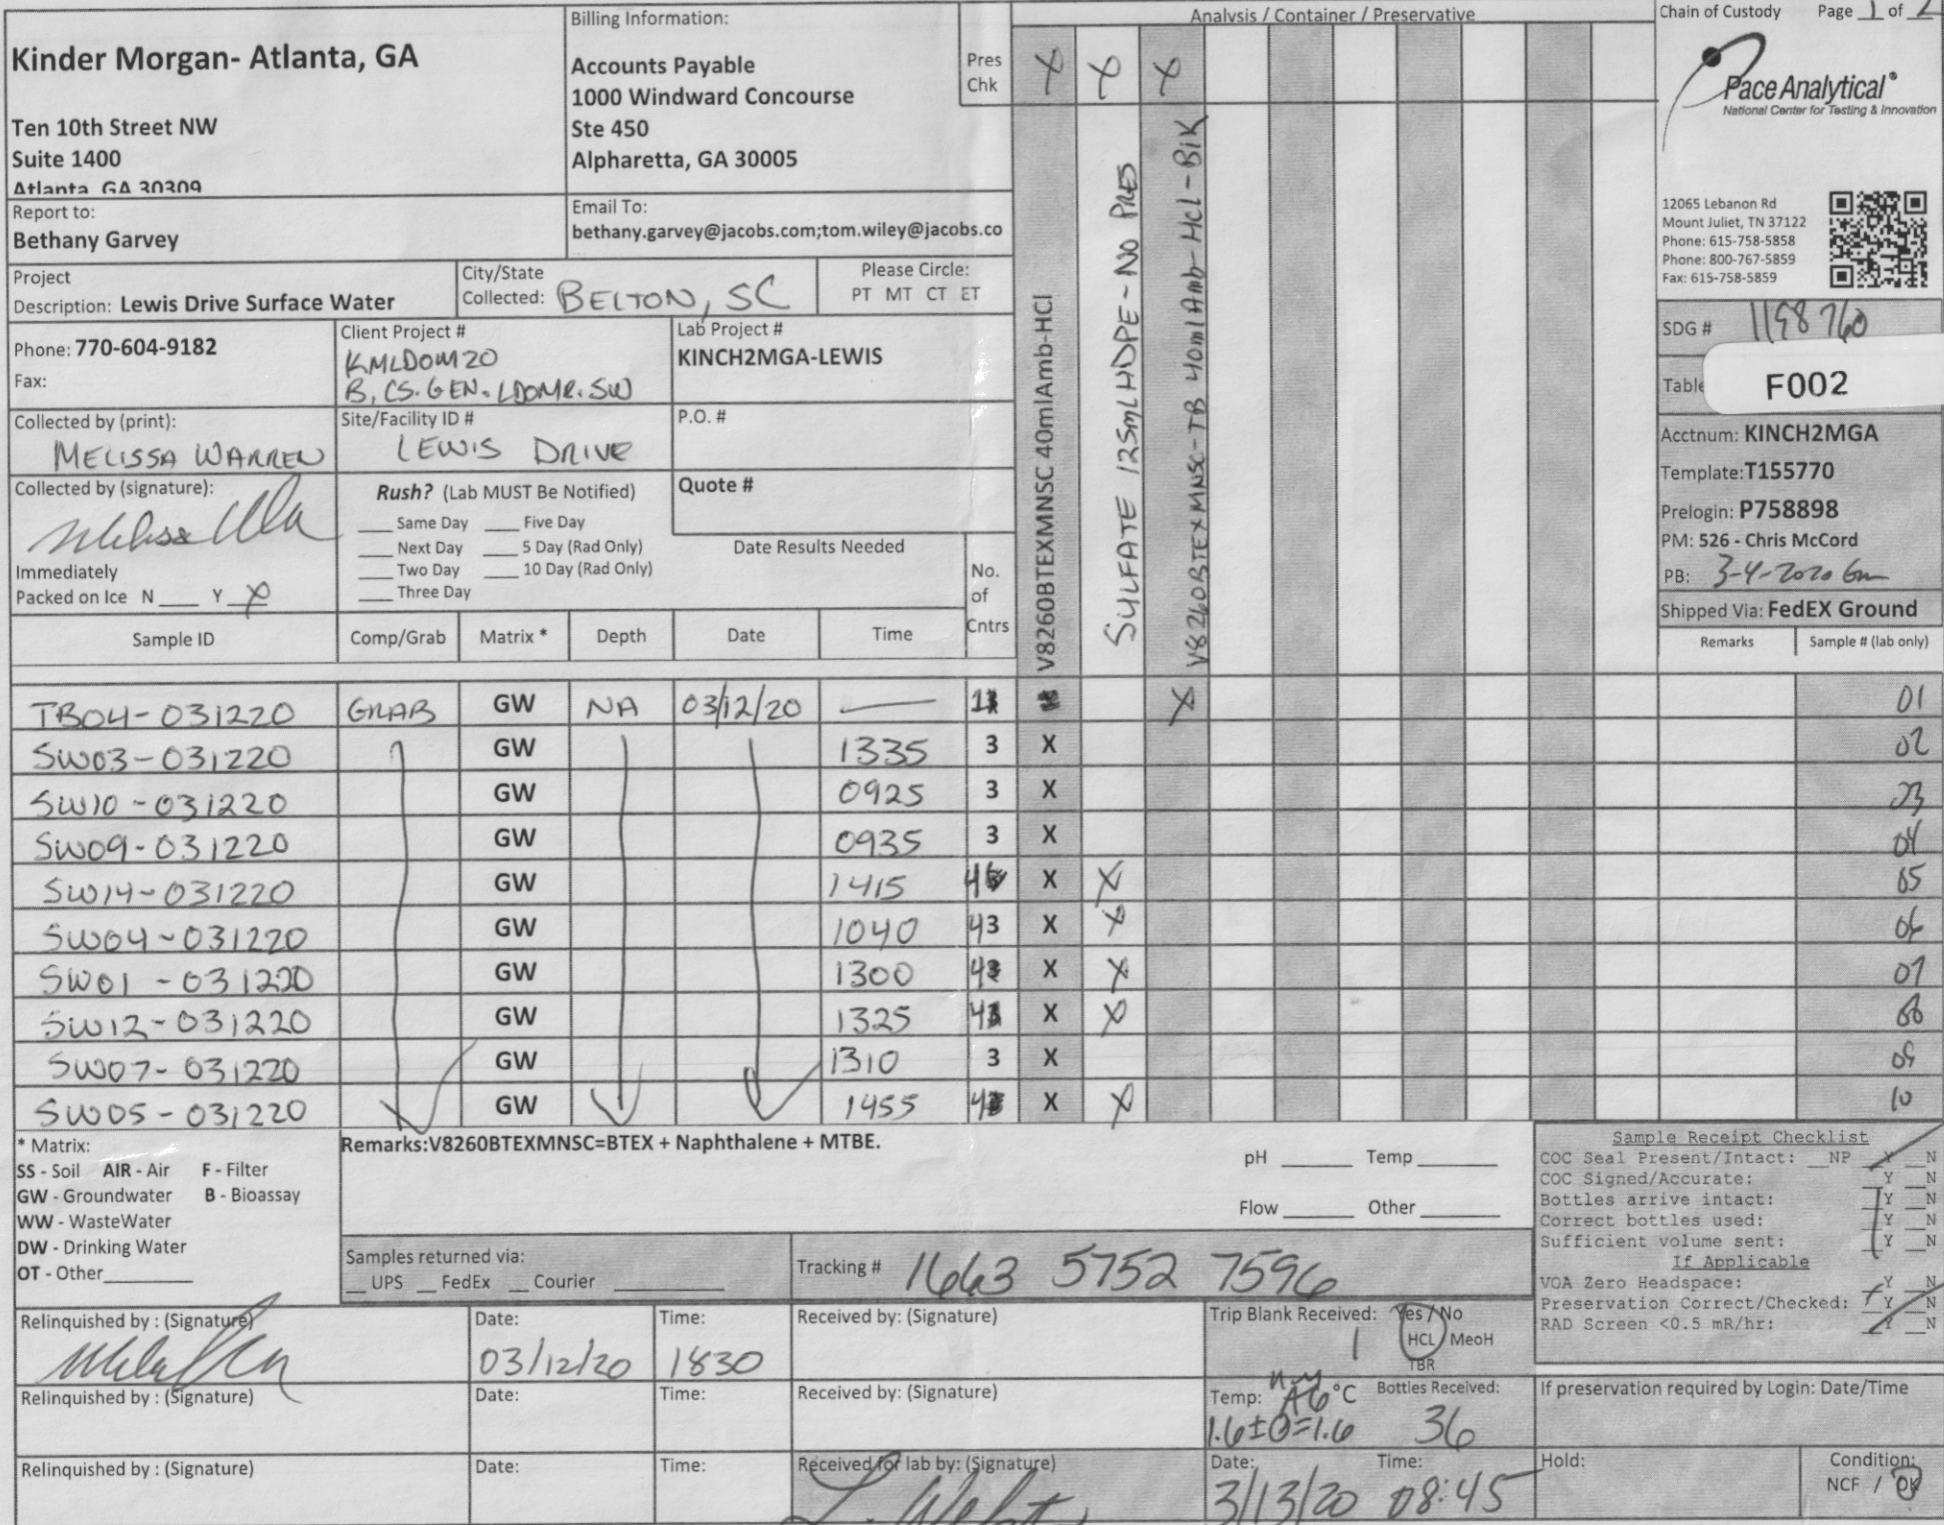 Kinder Morgan- Atlanta, GA
Ten 10th Street NW
Suite 1400
Atlanta, GA 30309
Billing Information:
Accounts Payable
1000 Windward Concourse
Ste 450
Alpharetta, GA 30005
Pres
Chk
Analysis / Container / Preservative
X X X
Chain of Custody Page 1 of 2
Pace Analytical®
National Center for Testing & Innovation
12065 Lebanon Rd
Mount Juliet, TN 37122
Phone: 615-758-5858
Phone: 800-767-5859
Fax: 615-758-5859
Report to:
Bethany Garvey
Email To:
bethany.garvey@jacobs.com;tom.wiley@jacobs.co
Project
Description: Lewis Drive Surface Water
City/State
Collected: BELTON, SC
Please Circle:
PT MT CT ET
Phone: 770-604-9182
Fax:
Client Project #
KMLDOM20
B, CS.GEN.LDOMR.SW
Lab Project #
KINCH2MGA-LEWIS
Collected by (print):
MELISSA WARREN
Site/Facility ID #
LEWIS DRIVE
P.O. #
Collected by (signature):
Immediately
Packed on Ice N ___ Y X
Rush? (Lab MUST Be Notified)
___ Same Day ___ Five Day
___ Next Day ___ 5 Day (Rad Only)
___ Two Day ___ 10 Day (Rad Only)
___ Three Day
Quote #
Date Results Needed
No.
of
Cntrs
V8260BTEXMNSC 40mlAmb-HCl
SULFATE 125mLHDPE-NO PRES
V8260BTEXMNSC-TB 40mlAmb-HCl-BlK
SDG # 1198760
Table
F002
Acctnum: KINCH2MGA
Template:T155770
Prelogin: P758898
PM: 526 - Chris McCord
PB: 3-4-2020
Shipped Via: FedEX Ground
Remarks Sample # (lab only)
Sample ID Comp/Grab Matrix * Depth Date Time
TB04-031220 GRAB GW NA 03/12/20 — 1 X 01
SW03-031220 GW 1335 3 X 02
SW10-031220 GW 0925 3 X 03
SW09-031220 GW 0935 3 X 04
SW14-031220 GW 1415 4 X X 05
SW04-031220 GW 1040 4 3 X X 06
SW01-031220 GW 1300 4 3 X X 07
SW12-031220 GW 1325 4 3 X X 08
SW07-031220 GW 1310 3 X 09
SW05-031220 GW 1455 4 3 X X 10
* Matrix:
SS - Soil AIR - Air F - Filter
GW - Groundwater B - Bioassay
WW - WasteWater
DW - Drinking Water
OT - Other
Remarks:V8260BTEXMNSC=BTEX + Naphthalene + MTBE.
pH ___ Temp ___
Flow ___ Other ___
Samples returned via:
__ UPS __ FedEx __ Courier
Tracking # 1663 5752 7596
Sample Receipt Checklist
COC Seal Present/Intact: __NP Y __N
COC Signed/Accurate: Y __N
Bottles arrive intact: Y __N
Correct bottles used: Y __N
Sufficient volume sent: Y __N
If Applicable
VOA Zero Headspace: Y __N
Preservation Correct/Checked: Y __N
RAD Screen <0.5 mR/hr: Y __N
Relinquished by : (Signature)
Date:
03/12/20
Time:
1830
Received by: (Signature)
Trip Blank Received: Yes / No
1 HCL / MeoH
TBR
Relinquished by : (Signature)
Date:
Time:
Received by: (Signature)
Temp: °C
1.6±0=1.6
Bottles Received:
36
If preservation required by Login: Date/Time
Relinquished by : (Signature)
Date:
Time:
Received for lab by: (Signature)
Date:
3/13/20
Time:
08:45
Hold:
Condition:
NCF / OK